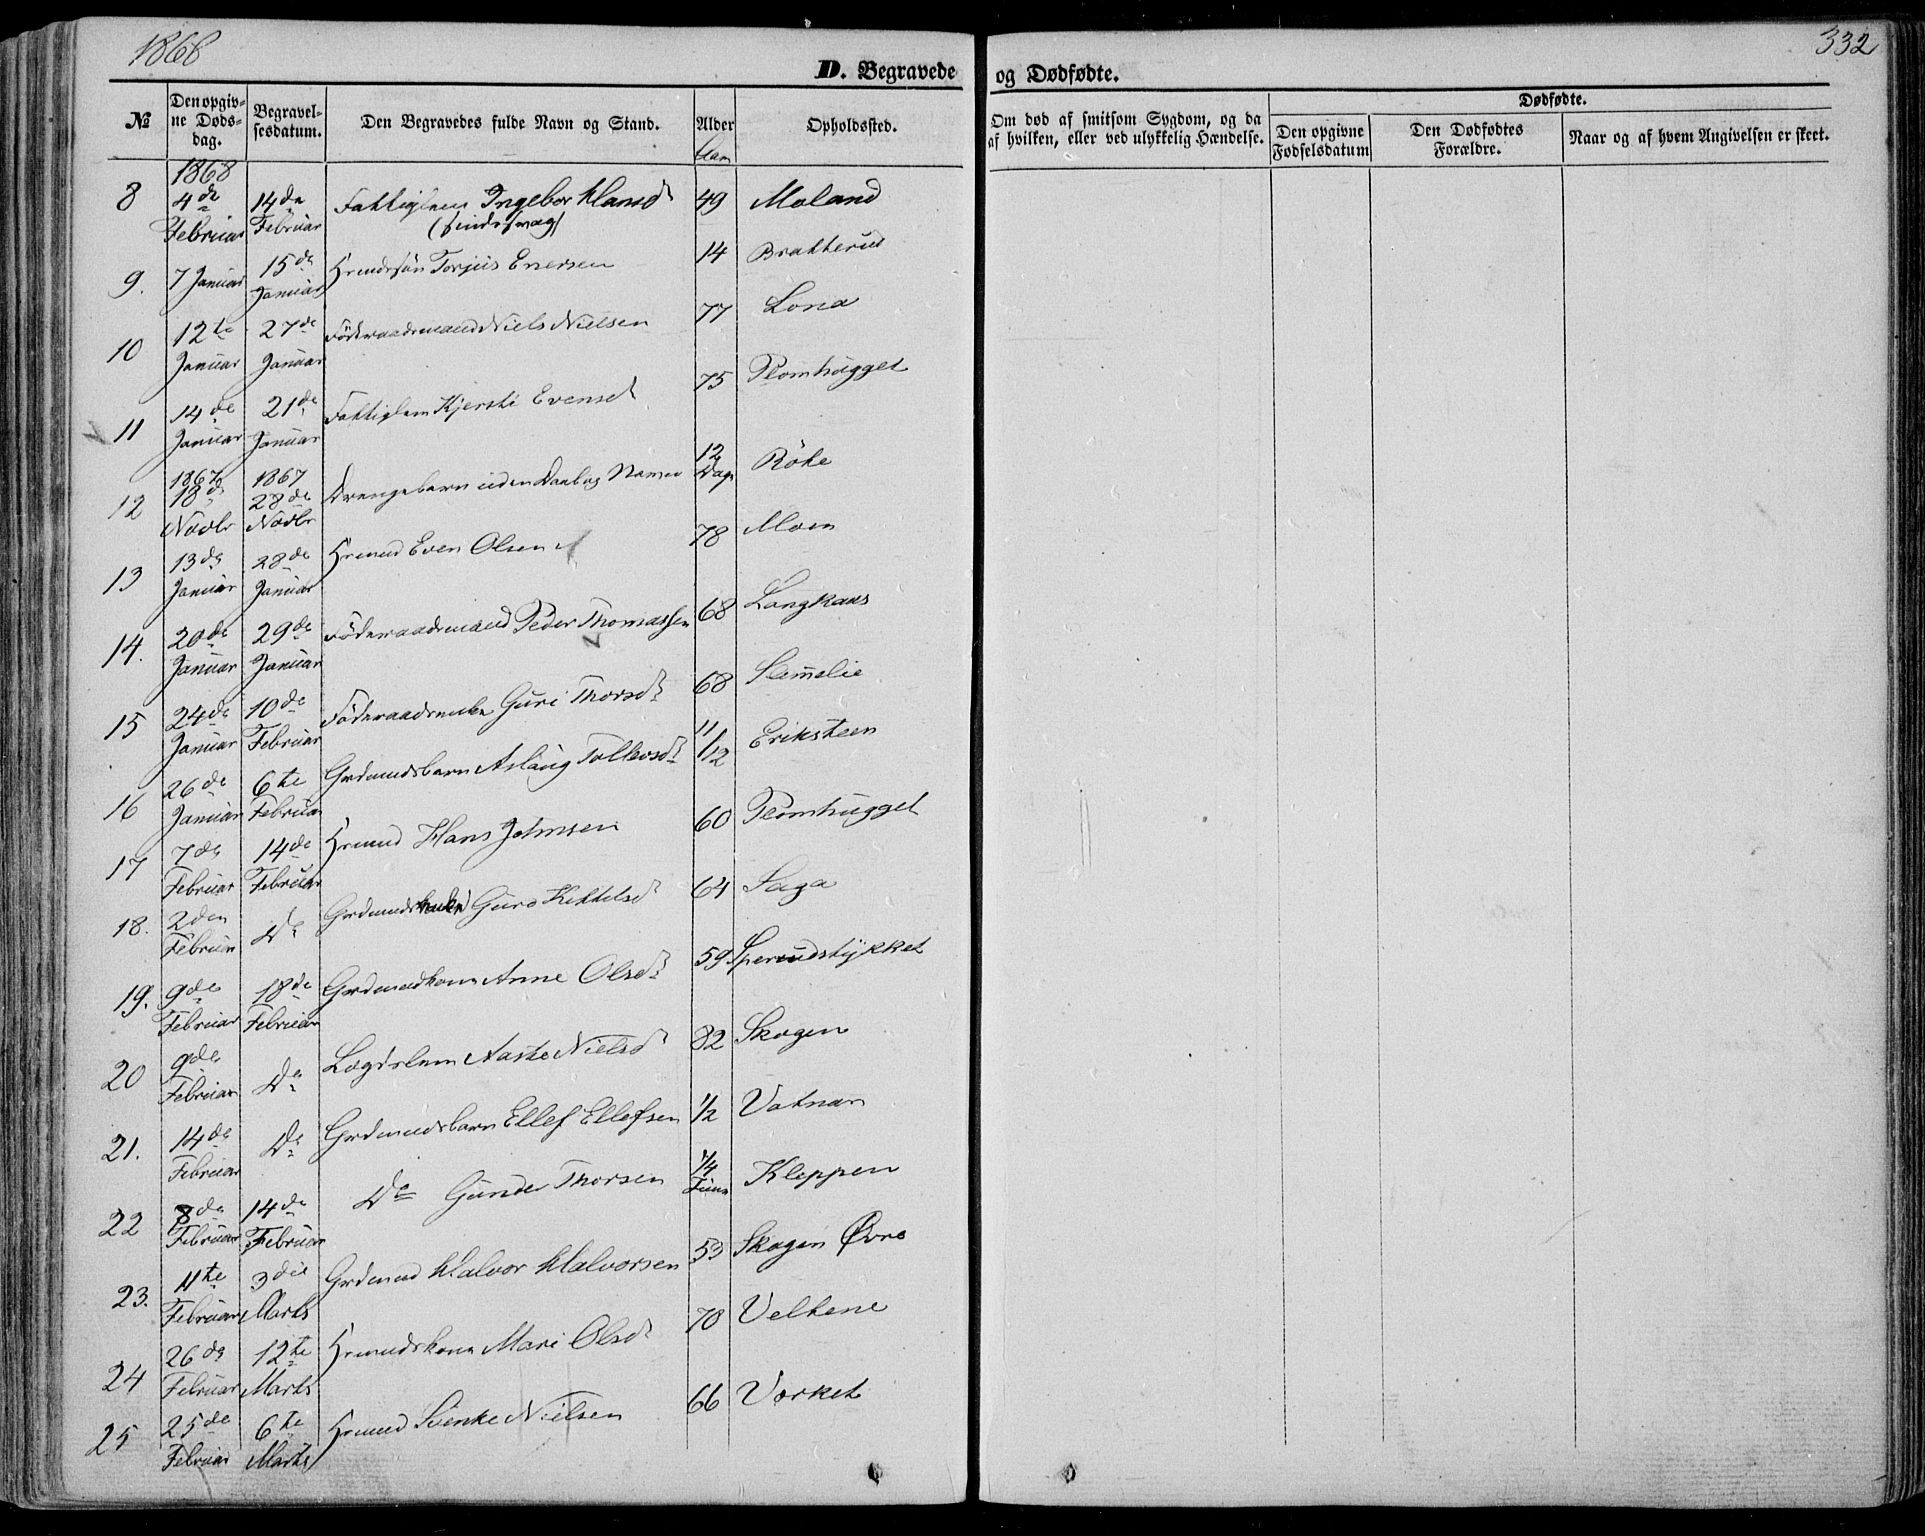 1868
332
D. Begravede og Dødfødte.
№
Den opgivne Dødsdag.
Begravelsesdatum.
Den Begravedes fulde Navn og Stand.
Alder
Aar
Opholdssted.
Om død af smitsom Sygdom, og da af hvilken, eller ved ulykkelig Hændelse.
Dødfødte.
Den opgivne Fødselsdatum
Den Dødfødtes Forældre.
Naar og af hvem Angivelsen er skeet.
1868
8 4de Februar 14de Februar Fattiglem Ingebor Hansd 49 Moland
(sindssvag)
9. 7 Januar 15de Januar Hmdssøn Torjus Enersen 14 Brakterud
10 12te Januar 27de Januar Föderaadsmand Niels Nielsen 77 Lona
11 14de Januar 21de Januar Fattiglem Kjersti Evensd 75 Plomhugget
12 1867 18de Novbr 1867 28de Novbr Drengebarn uden Daab og Navn 12 Dage Röke
13 13de Januar 28de Januar Hrmnd Even Olsen 78 Moen
14. 20de Januar 29de Januar Föderaadsmand Peder Thomassen 68 Langkaas
15 24de Januar 10de Februar Föderaadsenke Guri Thorsd 68 Slemelie
16 26de Januar 6te Februar Grdmndsbarn Aslaug Tollevsd 11/12 Eriksteen
17 7de Februar 14de Februar Hrmnd Hans Johnsen 60 Plomhugget
18. 2den Februar Do Grdmnds Guro Kittelsd 64 Saga
19. 9de Februar 18de Februar Grdmndkone Anne Olsd 59 Sperudstykket
20 9de Februar Do Lægdslem Aaste Nielsd 82 Skogen
21. 14de Februar Do Grdmndsbarn Ellef Ellefsen 1/2 Vatnar
22 8de Februar 14de Februar Do Gunder Thorsen 1/4 Time Kleppen
23. 11te Februar 3die Marts Grdmnd Halvor Halvorsen 53 Skogen Øvre
24 26de Februar 12te Marts Hrmndskone Mari Olsd 70 Veltene
25 25de Februar 6te Marts Hrmnd Svenke Nielsen 66 Værket